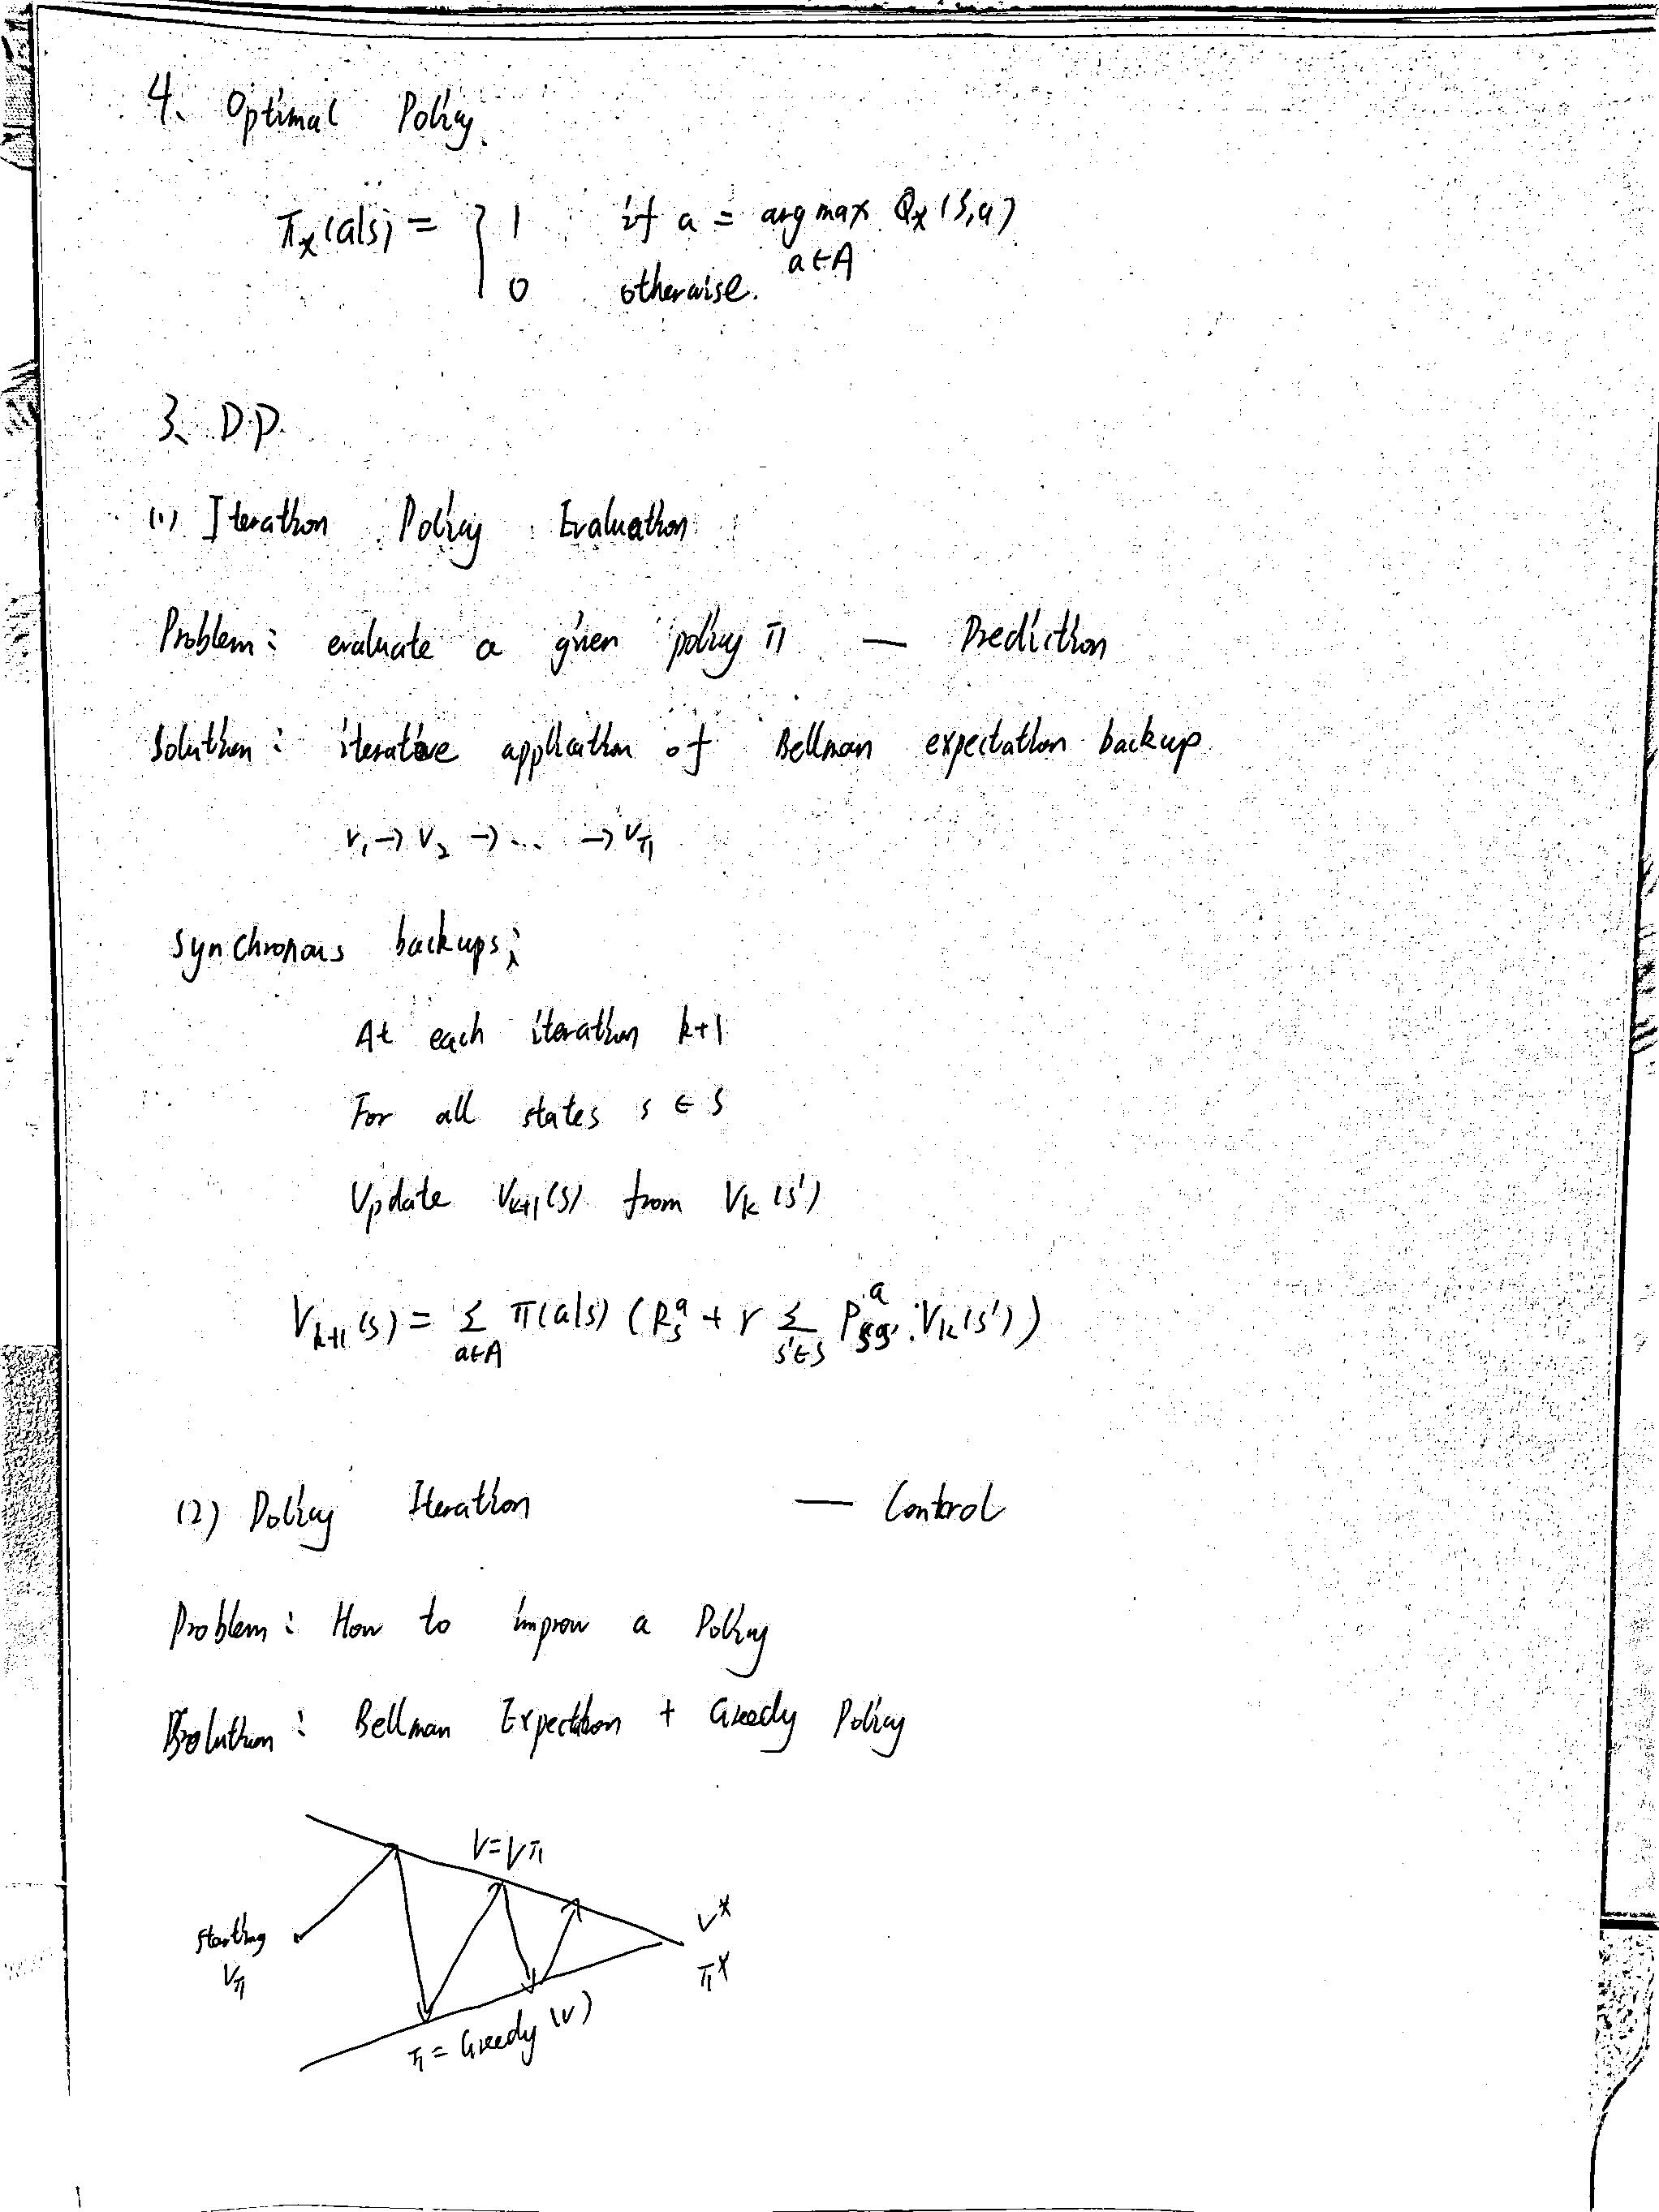 4、 Optimal Policy
π*(a|s) = { 1 if a = argmax Q*(s,a)
a∈A
0 otherwise.
3、 D.P.
(1) Iteration Policy Evaluation
Problem: evaluate a given policy π — Prediction
Solution: iterative application of Bellman expectation backup
V₁ → V₂ → ... → Vπ
Synchronous backups:
At each iteration k+1
For all states s ∈ S
Update Vₖ₊₁(s) from Vₖ(s')
Vₖ₊₁(s) = Σ_{a∈A} π(a|s) (R_s^a + γ Σ_{s'∈S} P_{ss'}^a · Vₖ(s'))
(2) Policy Iteration — Control
Problem: How to improv a Policy
Solution: Bellman Expectation + Greedy Policy
V=Vπ
starting
Vπ
V*
π*
π = Greedy (V)